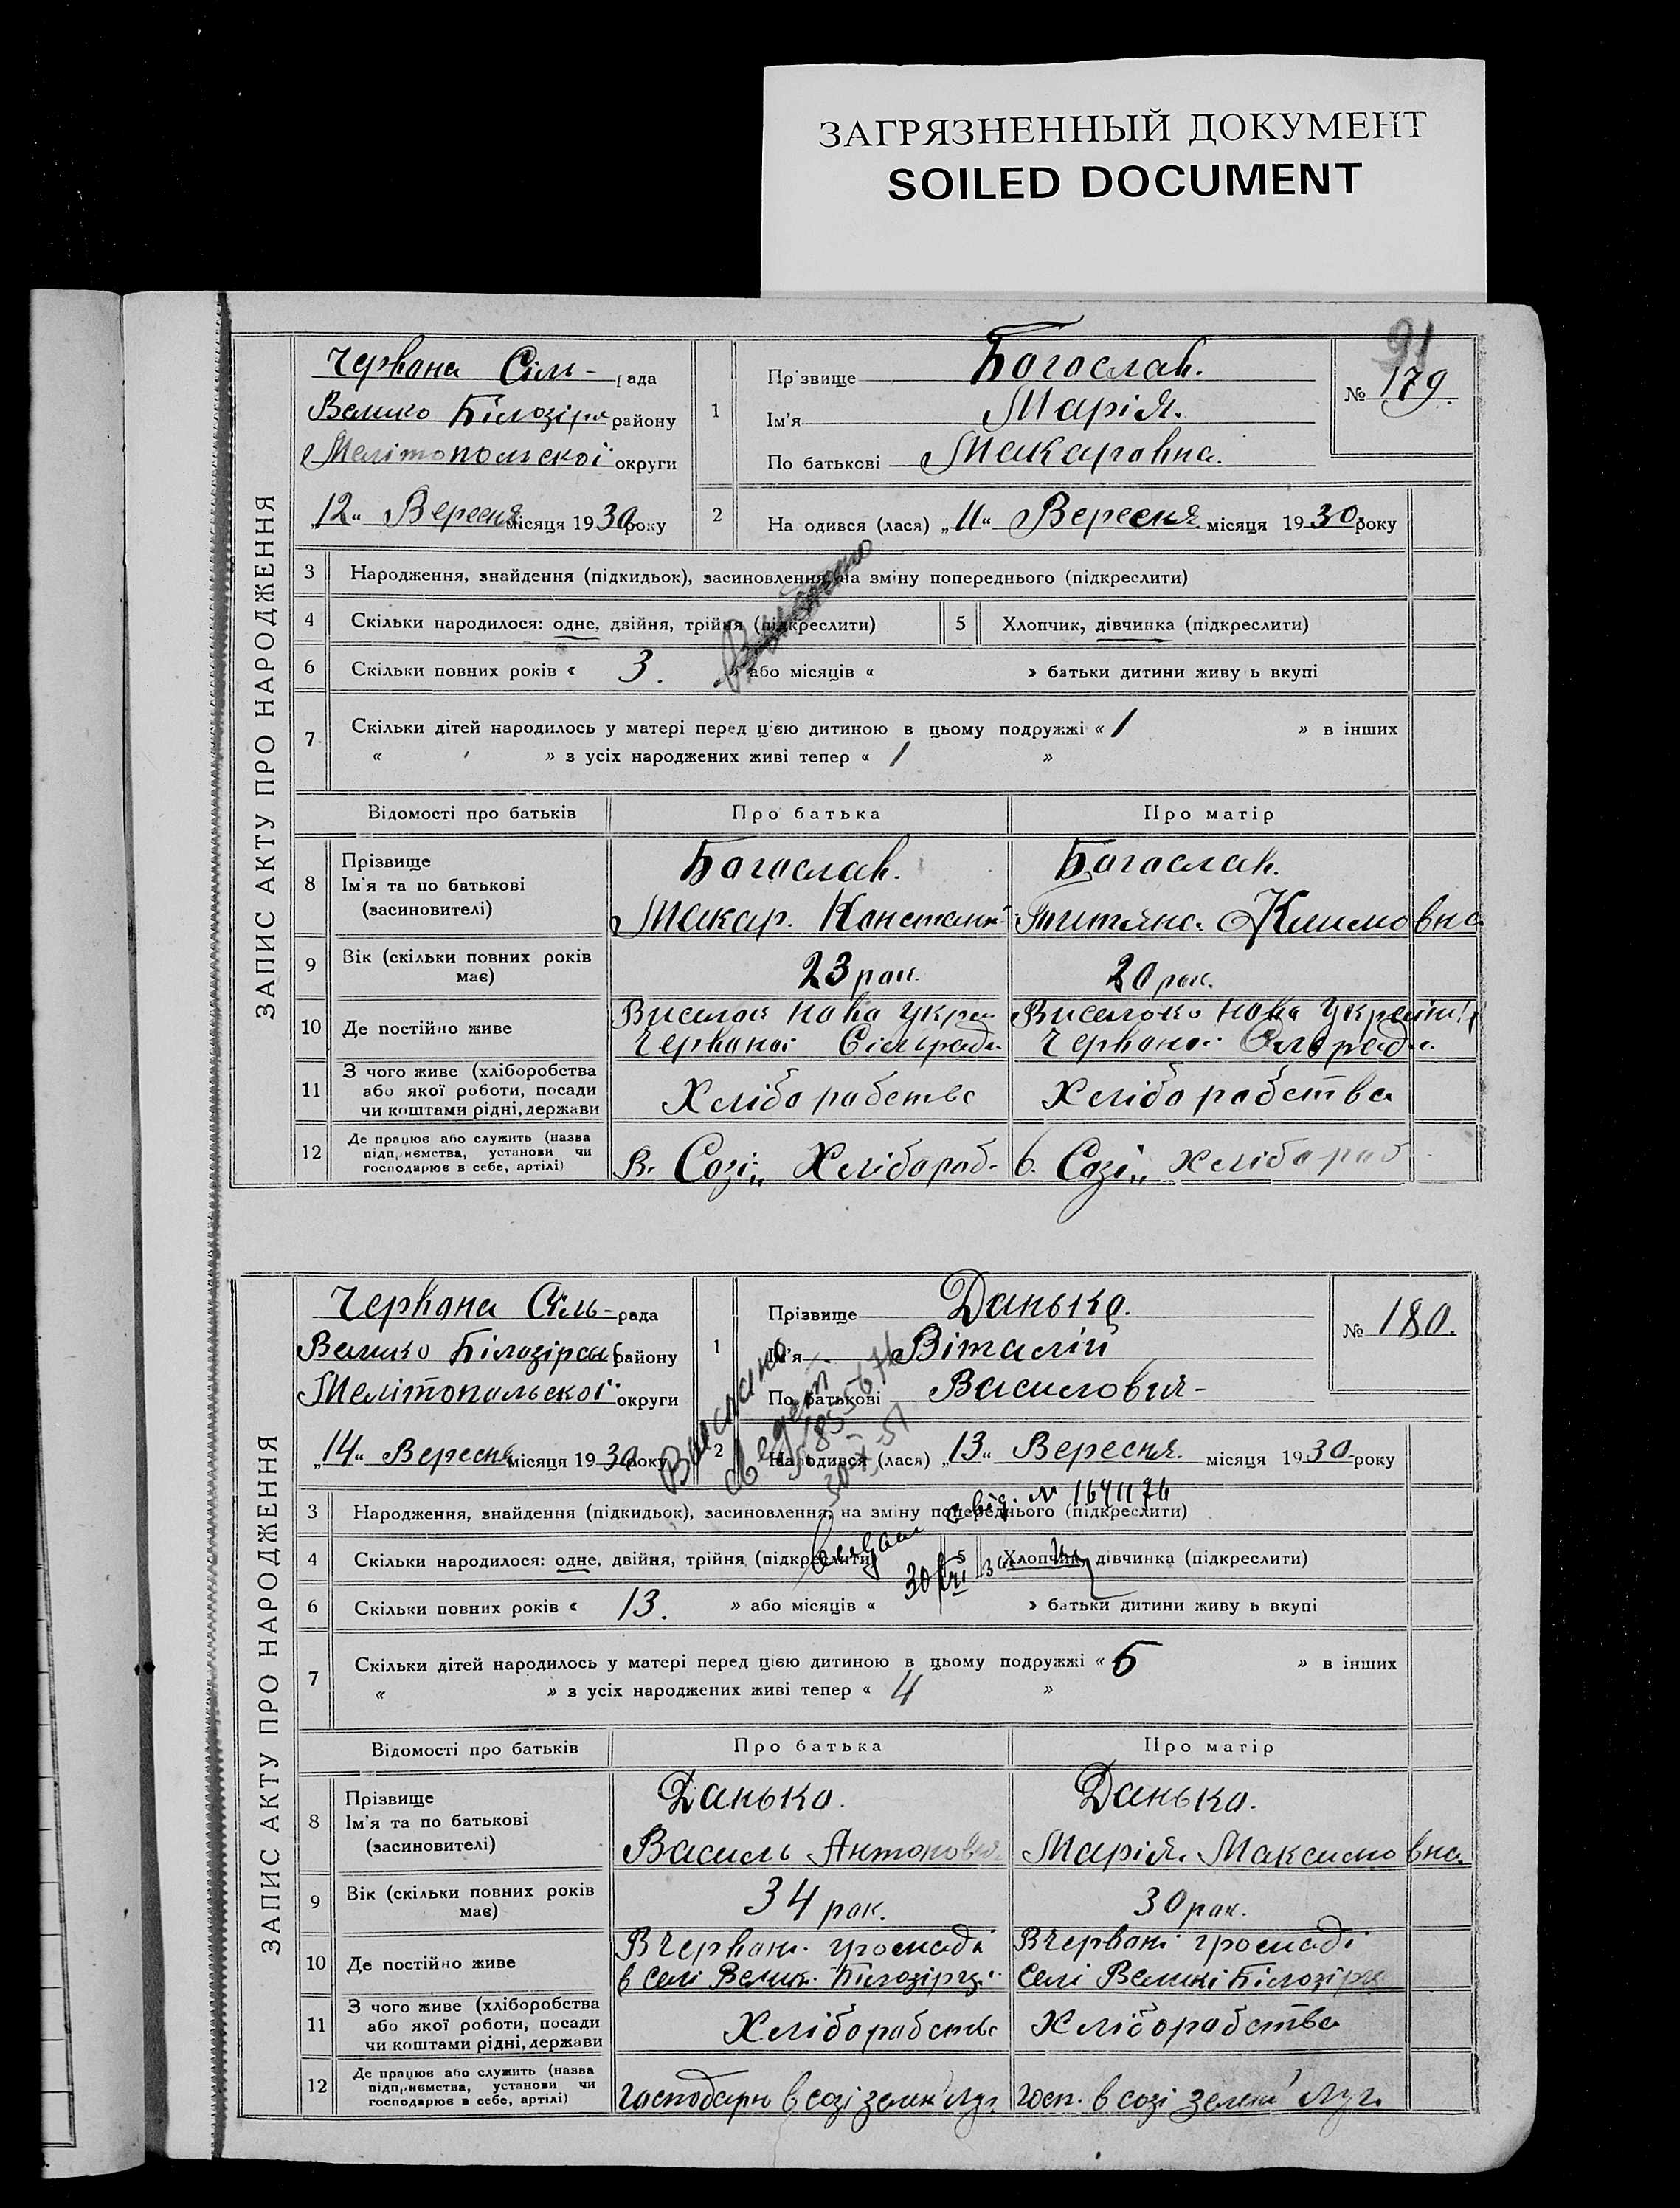 ЗАГРЯЗНЕННЫЙ ДОКУМЕНТ
SOILED DOCUMENT
91
ЗАПИС АКТУ ПРО НАРОДЖЕННЯ
Червона Сіль- рада
Велико Білозірс району
Мелітопольскої округи
"12" Вересня місяця 1930 року
1
Прізвище Богослав.
Ім'я Марія.
По батькові Макаровна.
№ 179.
2
На одився (лася) "11" Вересня місяця 1930 року
3 Народження, знайдення (підкидьок), засиновлення, на зміну попереднього (підкреслити)
4 Скільки народилося: одне, двійня, трійня (підкреслити)
5 Хлопчик, дівчинка (підкреслити)
6 Скільки повних років « 3. » або місяців « » батьки дитини живу ь вкупі
7 Скільки дітей народилось у матері перед цією дитиною в цьому подружжі « 1 » в інших
« » з усіх народжених живі тепер « 1 »
Відомості про батьків Про батька Про матір
8 Прізвище Богослав. Богослав.
Ім'я та по батькові
(засиновителі) Макар. Констант Титяна. Климовна
9 Вік (скільки повних років має) 23 рок. 20 рок.
10 Де постійно живе Виселок нова Укра Виселоко нова Україн
Червоної Сільради Червоної
11 З чого живе (хліборобства або якої роботи, посади чи коштами рідні, держави Хліборобство Хліборобства
12 Де працює або служить (назва підприємства, установи чи господарює в себе, артілі) В. Созі „ Хлібороб. в. Созі „ Хлібороб
ЗАПИС АКТУ ПРО НАРОДЖЕННЯ
Червона Сіль- рада
Велико Білозірскої району
Мелітопольскої округи
"14" Вересня місяця 1930 року
1
Прізвище Данько.
Ім'я Віталій
По батькові Василович
№ 180.
2
Народився (лася) "13" Вересня місяця 1930 року
3 Народження, знайдення (підкидьок), засиновлення, на зміну попереднього (підкреслити)
№ 1641176
4 Скільки народилося: одне, двійня, трійня (підкреслити)
5 Хлопчик, дівчинка (підкреслити)
6 Скільки повних років « 13. » або місяців « » батьки дитини живу ь вкупі
7 Скільки дітей народилось у матері перед цією дитиною в цьому подружжі « 5 » в інших
« » з усіх народжених живі тепер « 4 »
Відомості про батьків Про батька Про матір
8 Прізвище Данько. Данько.
Ім'я та по батькові
(засиновителі) Василь Антонович Марія. Максимовна.
9 Вік (скільки повних років має) 34 рок. 30 рок.
10 Де постійно живе В Червон. громаді В Червоні громаді
в Селі Велик. Білозірці Селі Великі Білозірц
11 З чого живе (хліборобства або якої роботи, посади чи коштами рідні, держави Хліборобство Хліборобство
12 Де працює або служить (назва підприємства, установи чи господарює в себе, артілі) господарю в созі зелен Луг. госп. в созі зелени Луг.